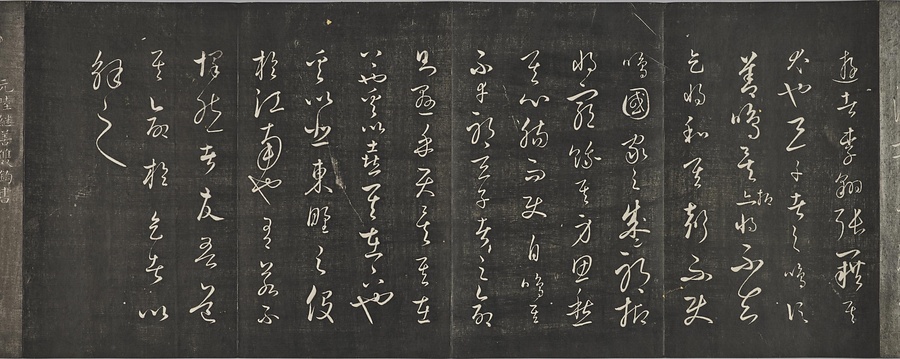 遊者李翱張籍其
尤也三子者之鳴信
善鳴矣抑將不知
天將和其聲而使
鳴國家之盛邪抑
將窮餓其身思愁
其心腸而使自鳴其
不幸邪三子者之命
則懸乎天矣其在
上也奚以喜其在下也
奚以悲東野之役
於江南也有若不
懌然者故吾道
其命於天者以
解之
元陸繼善雙鉤書